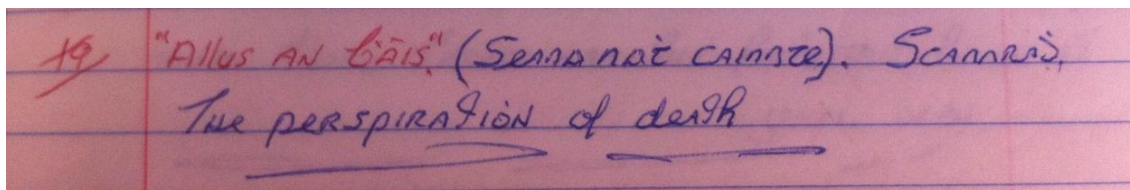 19 "Allus an Báis." (Seana nat cainnte). Scannrad.
The perspiration of death